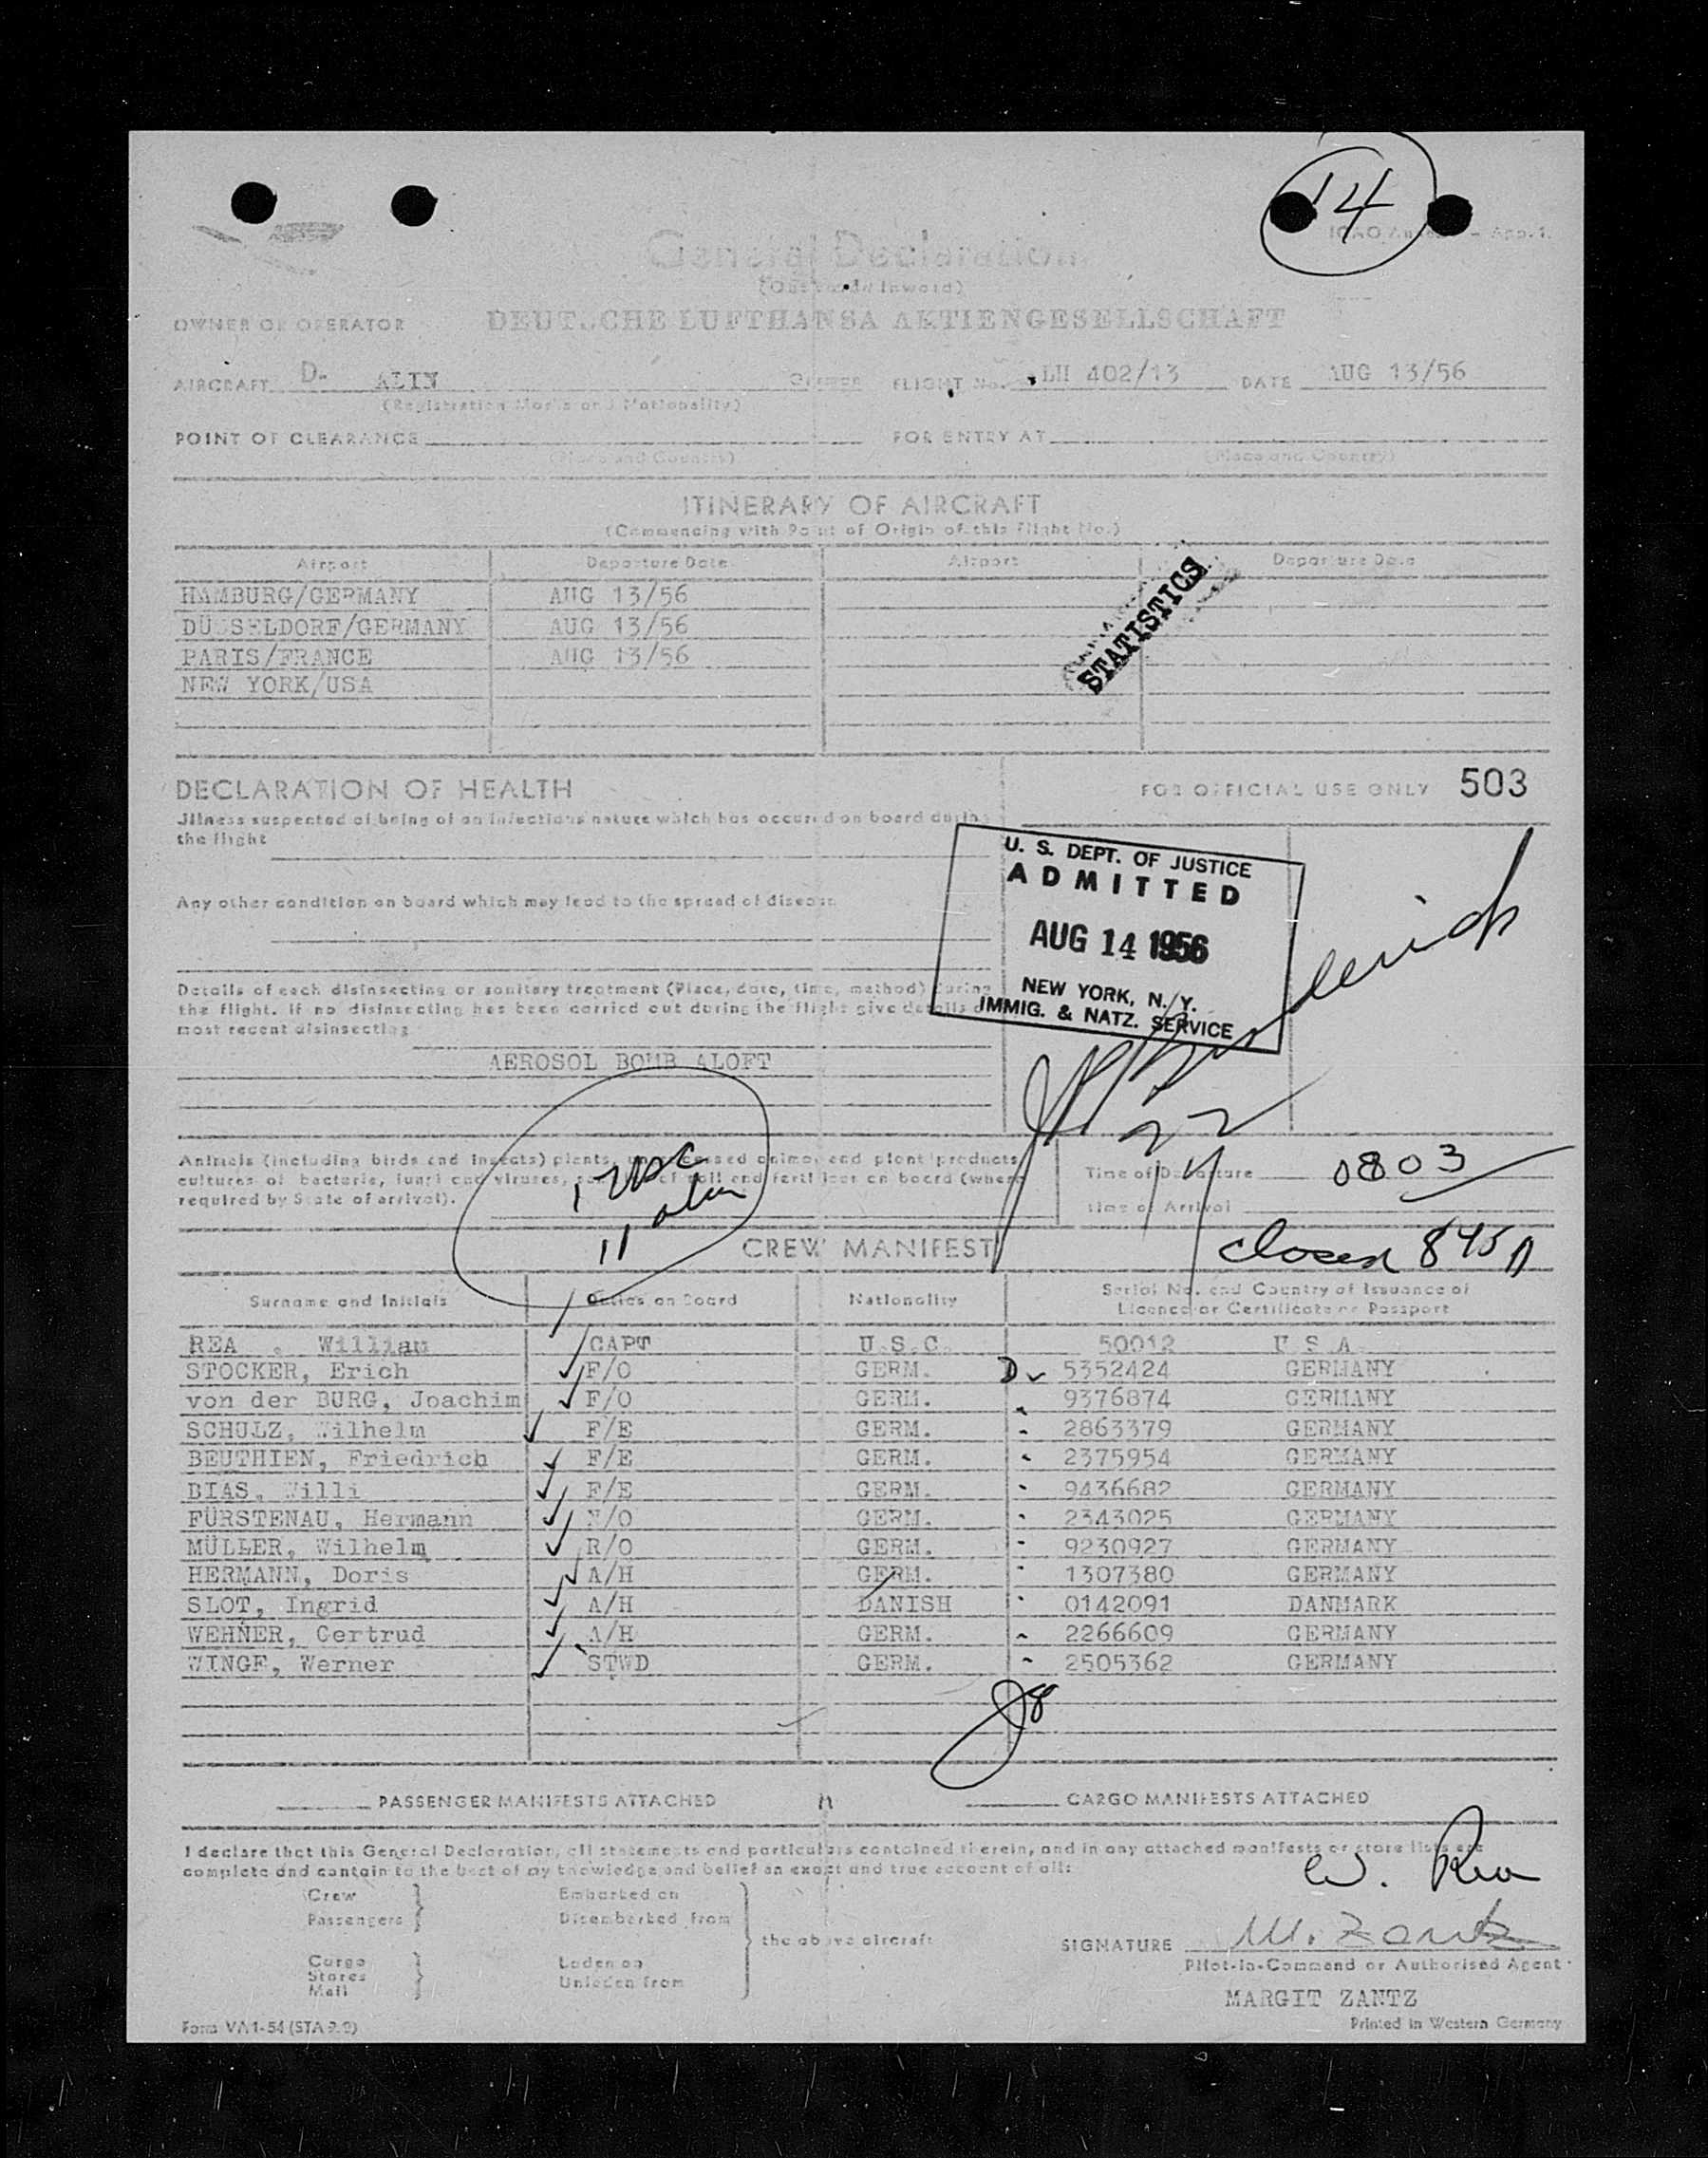 14
General Declaration
(Outward/Inward)
OWNER OR OPERATOR DEUTSCHE LUFTHANSA AKTIENGESELLSCHAFT
AIRCRAFT D- ALIN FLIGHT No. LH 402/13 DATE AUG 13/56
(Registration Marks and Nationality)
POINT OF CLEARANCE FOR ENTRY AT
(Place and Country) (Place and Country)
ITINERARY OF AIRCRAFT
(Commencing with Point of Origin of this Flight No.)
Airport Departure Date Airport Departure Date
HAMBURG/GERMANY AUG 13/56
DÜSSELDORF/GERMANY AUG 13/56
PARIS/FRANCE AUG 13/56
NEW YORK/USA
STATISTICS
DECLARATION OF HEALTH
FOR OFFICIAL USE ONLY 503
Jllness suspected of being of an infectious nature which has occured on board during
the flight
Any other condition on board which may lead to the spread of disease
U. S. DEPT. OF JUSTICE
ADMITTED
AUG 14 1956
NEW YORK, N. Y.
IMMIG. & NATZ. SERVICE
Details of each disinsecting or sanitary treatment (Place, date, time, method) during
the flight. If no disinsecting has been carried out during the flight give details of
most recent disinsecting
AEROSOL BOMB ALOFT
22
14
Animals (including birds and insects) plants, unprocessed animal and plant products
cultures of bacteria, fungi and viruses, samples of soil and fertilizer on board (where
required by State of arrival).
1 USC
11 alien
Time of Departure 0803
Time of Arrival
closed 845A
CREW MANIFEST
Surname and Initials Duties on Board Nationality Serial No. and Country of Issuance of
Licence or Certificate or Passport
REA , William CAPT U.S.C. 50012 U S A
STOCKER, Erich F/O GERM. D 5352424 GERMANY
von der BURG, Joachim F/O GERM. 9376874 GERMANY
SCHULZ, Wilhelm F/E GERM. 2863379 GERMANY
BEUTHIEN, Friedrich F/E GERM. 2375954 GERMANY
BIAS, Willi F/E GERM. 9436682 GERMANY
FÜRSTENAU, Hermann N/O GERM. 2343025 GERMANY
MÜLLER, Wilhelm R/O GERM. 9230927 GERMANY
HERMANN, Doris A/H GERM. 1307380 GERMANY
SLOT, Ingrid A/H DANISH 0142091 DANMARK
WEHNER, Gertrud A/H GERM. 2266609 GERMANY
WINGE, Werner STWD GERM. 2505362 GERMANY
PASSENGER MANIFESTS ATTACHED CARGO MANIFESTS ATTACHED
I declare that this General Declaration, all statements and particulars contained therein, and in any attached manifests or store lists are
complete and contain to the best of my knowledge and belief an exact and true account of all:
W. Rea
Crew Embarked on
Passengers Disembarked from
the above aircraft
Cargo Laden on
Stores Unladen from
Mail
SIGNATURE M. Zantz
Pilot-in-Command or Authorised Agent
MARGIT ZANTZ
Form VA1-54 (STA 9.9) Printed in Western Germany